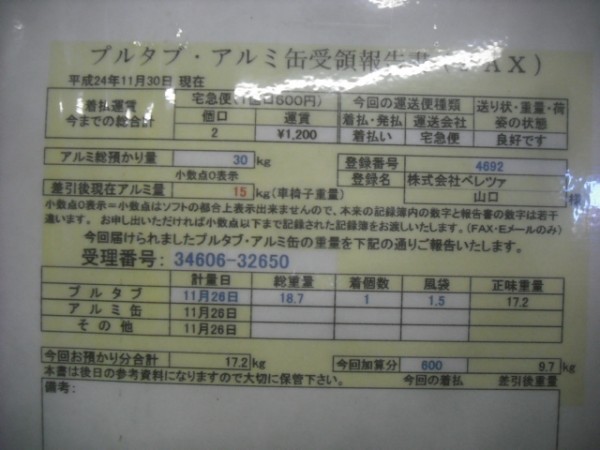 プルタブ・アルミ缶受領報告書(FAX)
平成24年11月30日 現在
着払運賃 今までの総合計
宅急便(1個口600円)
個口 運賃
2 ¥1,200
今回の運送便種類
着払・発払 運送会社
着払い 宅急便
送り状・重量・荷姿の状態
良好です
アルミ総預かり量 30 kg
小数点0表示
差引後現在アルミ量 15 kg(車椅子重量)
登録番号 4692
登録名 株式会社ベレツァ
山口 様
小数点0表示=小数点はソフトの都合上表示出来ませんので、本来の記録簿内の数字と報告書の数字は若干
違います。 お申し出いただければ小数点以下まで記録された記録簿をお渡しいたします。(FAX・Eメールのみ)
今回届けられましたプルタブ・アルミ缶の重量を下記の通りご報告いたします。
受理番号: 34606-32650
計量日 総重量 着個数 風袋 正味重量
プルタブ 11月26日 18.7 1 1.5 17.2
アルミ缶 11月26日
その他 11月26日
今回お預かり分合計 17.2 kg
今回加算分 600 9.7 kg
本書は後日の参考資料になりますので大切に保管下さい。 今回の着払 差引後重量
備考: